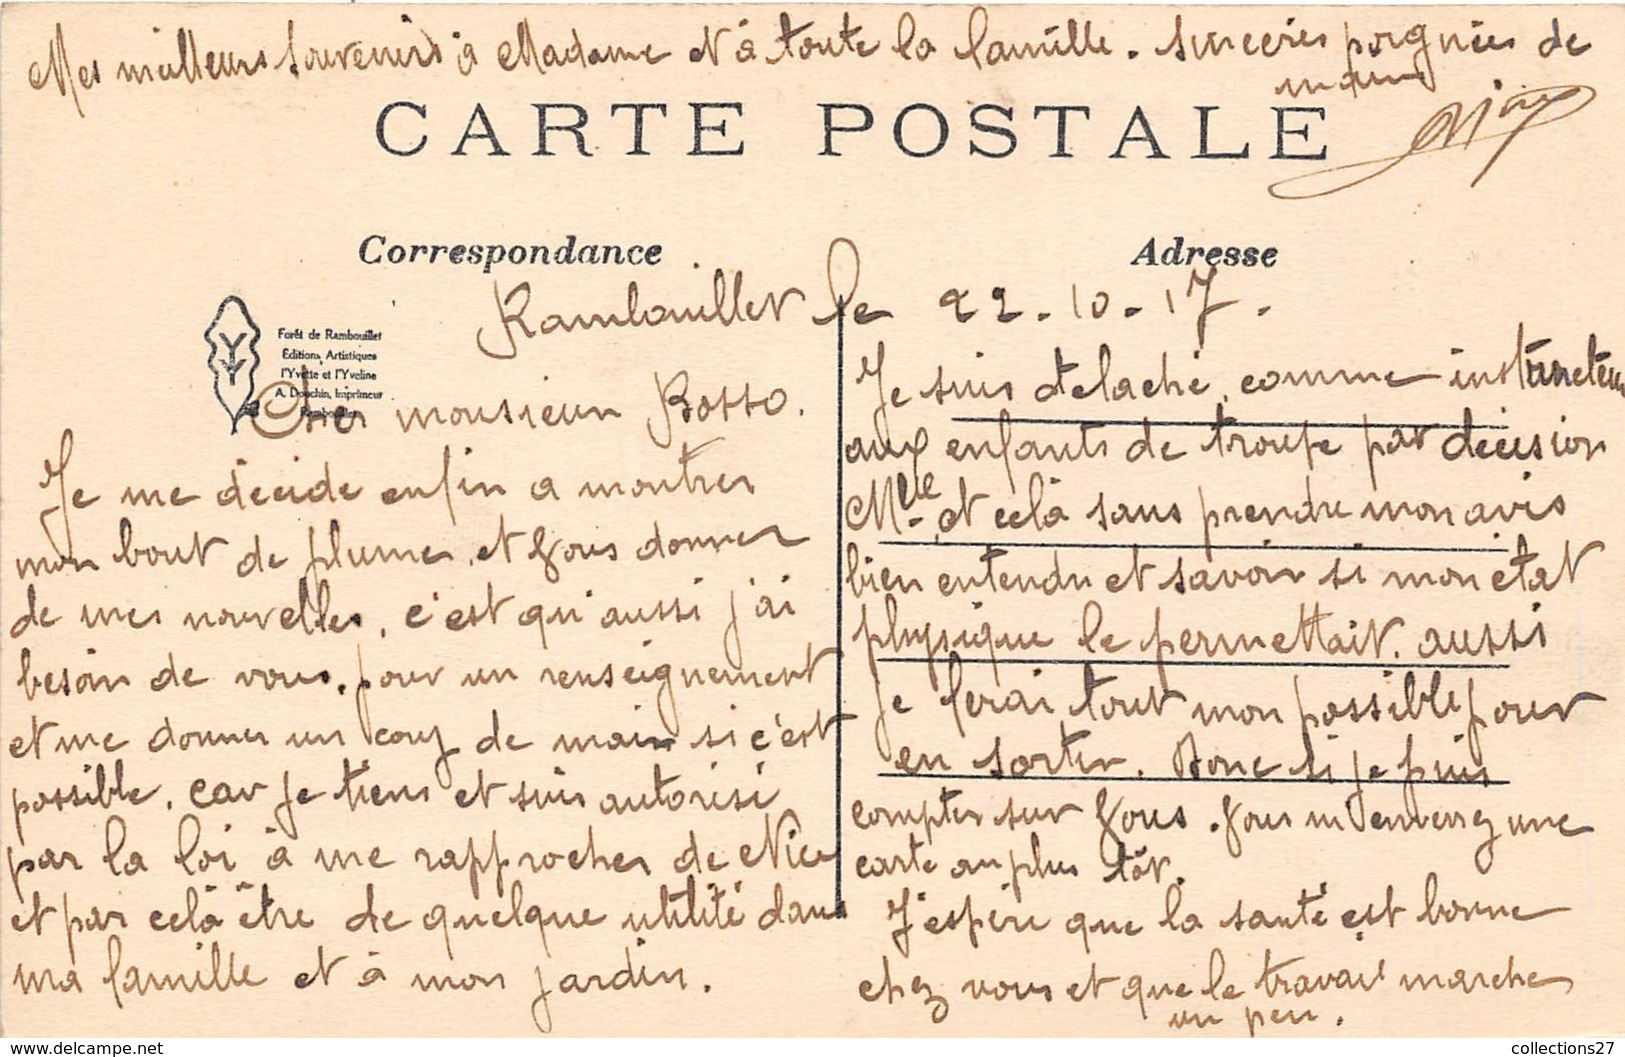 Mes meilleurs souvenirs à Madame et à toute la famille. Sincères poignées de
main
CARTE POSTALE
Correspondance
Adresse
Forêt de Rambouillet
Éditions Artistiques
l'Yvette et l'Yveline
A. Douchin, Imprimeur
Rambouillet
Rambouillet le 22-10-17.
Cher monsieur Bosso.
Je me décide enfin a montrer
mon bout de plume, et vous donner
de mes nouvelles, c'est qu'aussi j'ai
besoin de vous, pour un renseignement
et me donner un coup de main si c'est
possible, car je tiens et suis autorisé
par la loi à me rapprocher de Nice
et par celà être de quelque utilité dans
ma famille et à mon jardin.
Je suis détaché, comme instructeur
aux enfants de troupe par décision
Mlle, et celà sans prendre mon avis
bien entendu et savoir si mon état
physique le permettait, aussi
je ferai tout mon possible pour
en sortir. Donc si je puis
compter sur vous. vous m'enverrez une
carte au plus tôt.
J'espère que la santé est bonne
chez vous et que le travail marche
un peu.
collections27